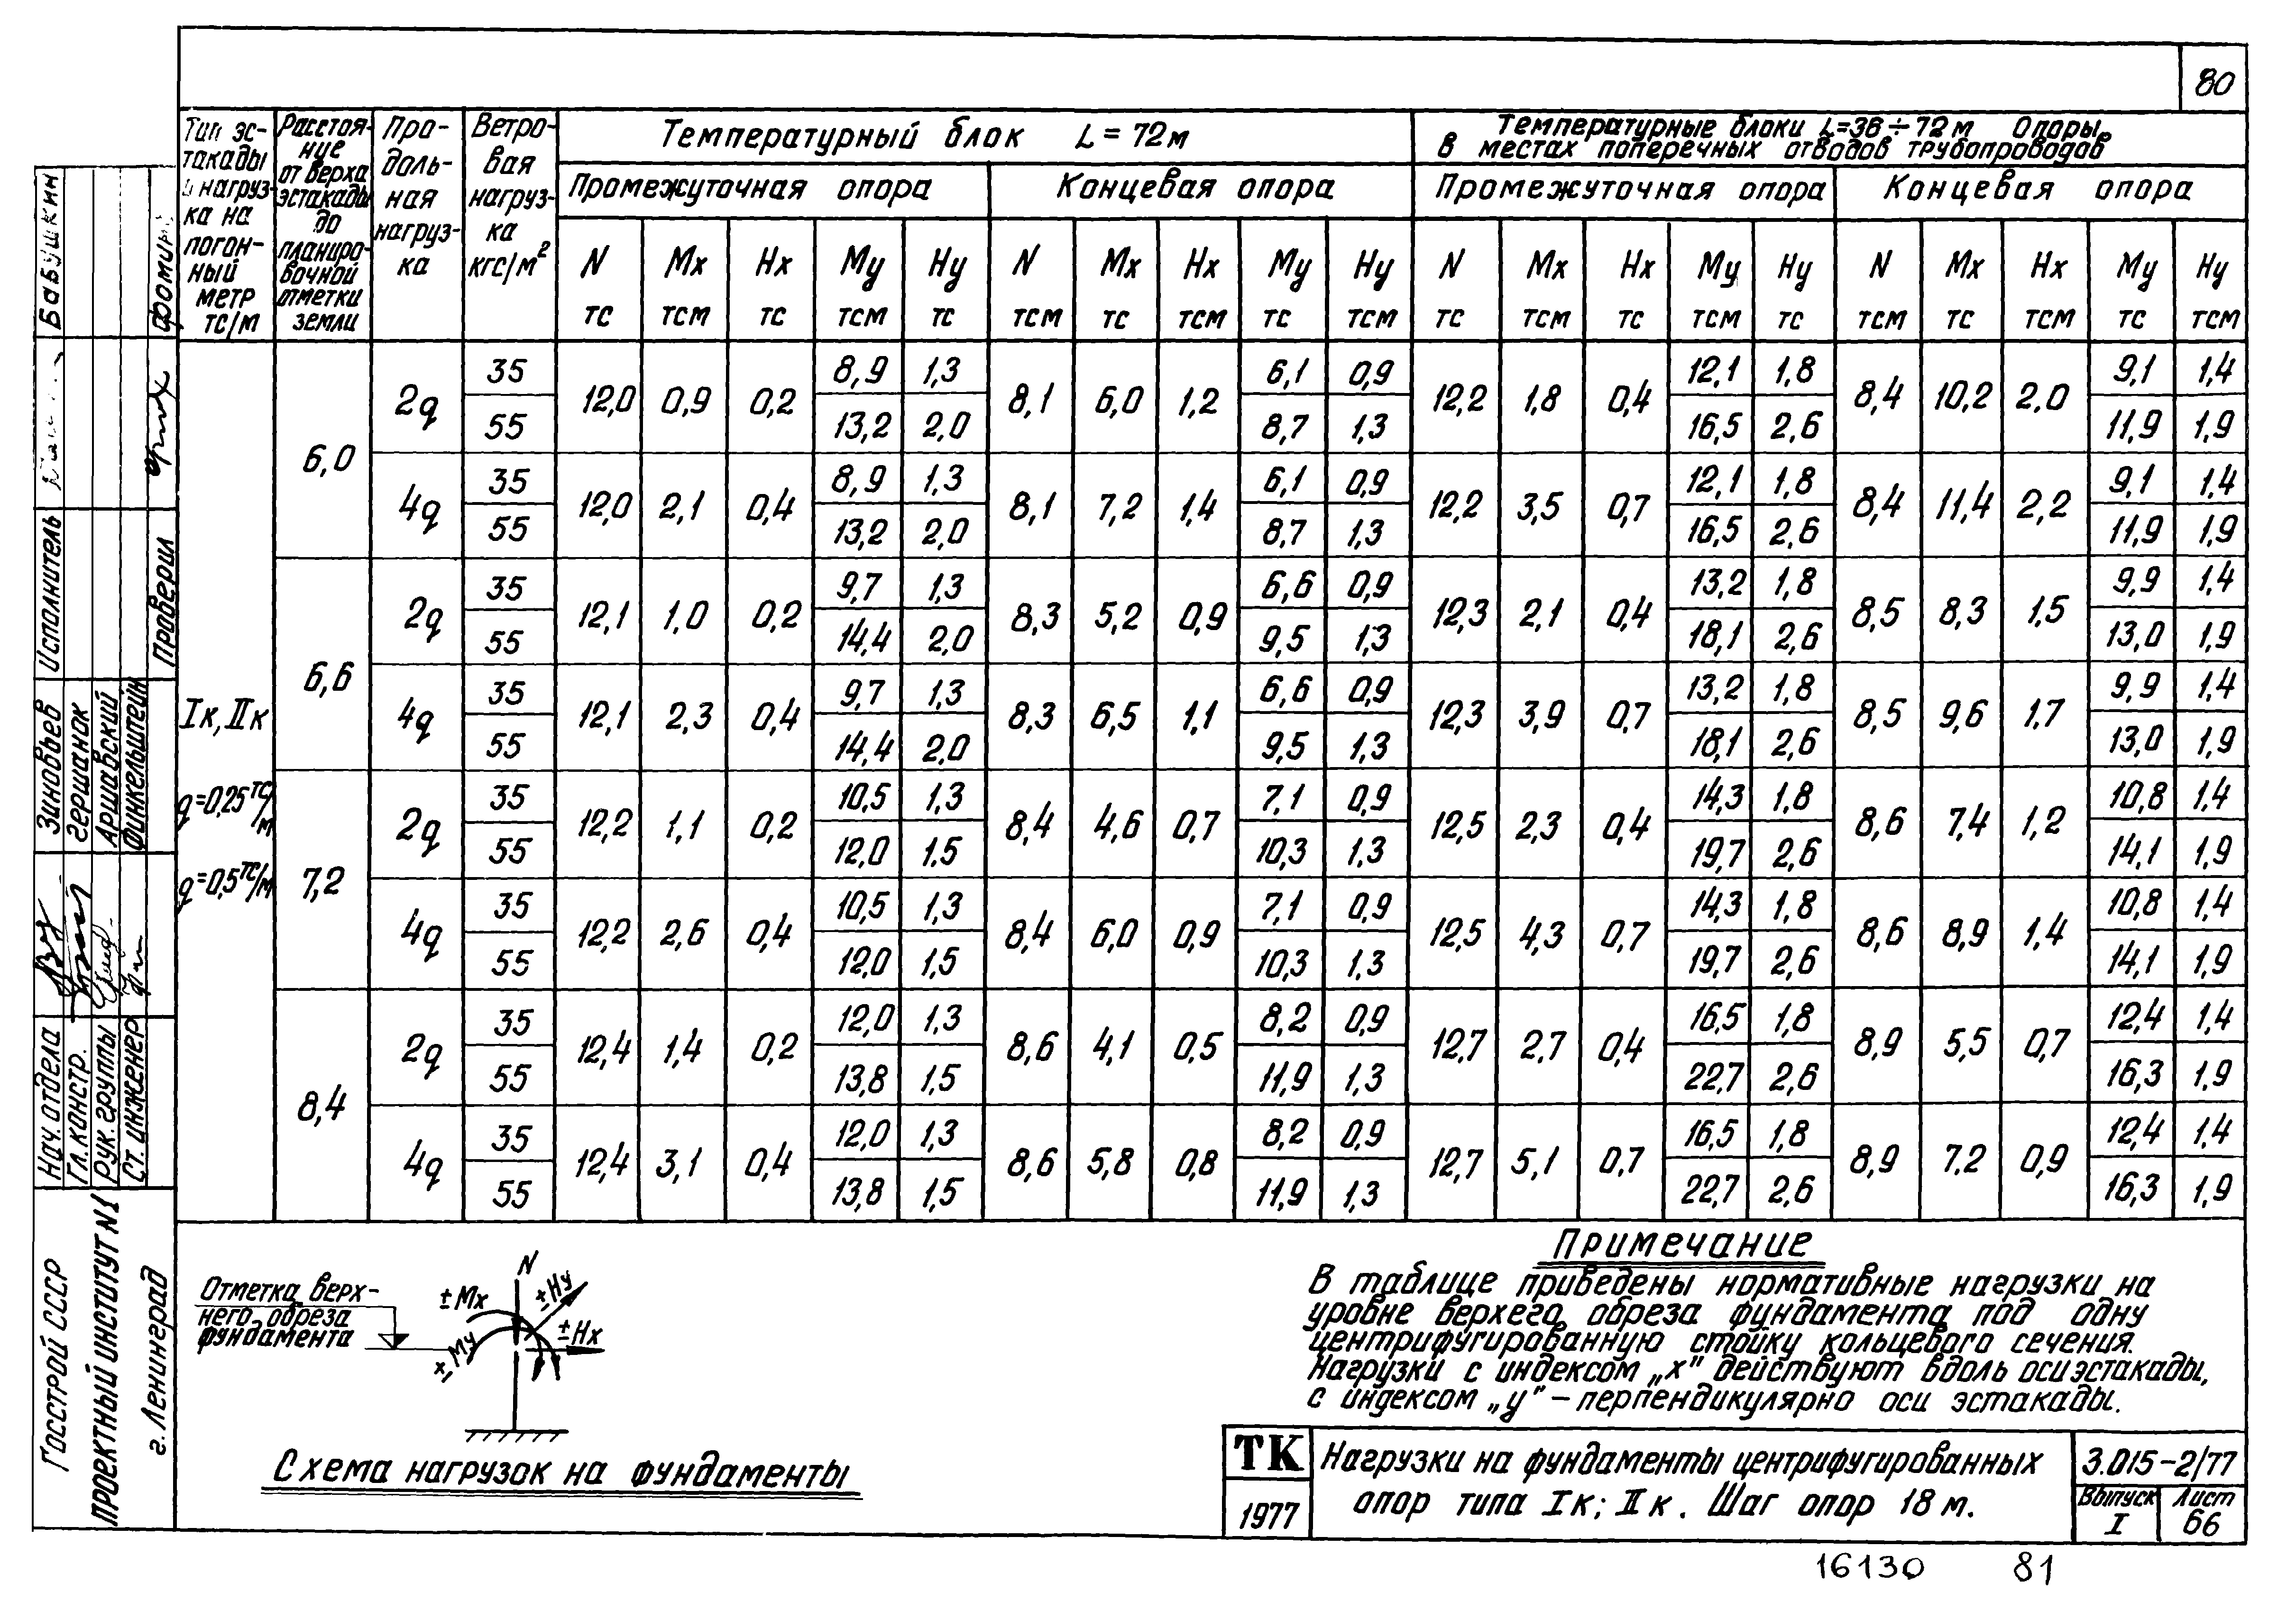 80
Тип эс-
такады
и нагруз-
ка на
погон-
ный
метр
тс/м
Расстоя-
ние
от верха
эстакады
до
планиро-
вочной
отметки
земли
Про-
доль-
ная
нагруз-
ка
Ветро-
вая
нагруз-
ка
кгс/м²
Температурный блок L = 72 м
Температурные блоки L=36÷72 м Опоры
в местах поперечных отводов трубопроводов
Промежуточная опора Концевая опора Промежуточная опора Концевая опора
N Mx Hx My Hy N Mx Hx My Hy N Mx Hx My Hy N Mx Hx My Hy
тс тсм тс тсм тс тсм тс тсм тс тсм тс тсм тс тсм тс тсм тс тсм тс тсм
Iк, IIк
q=0,25 тс/м
q=0,5 тс/м
6,0
2q
35 8,9 1,3 6,1 0,9 12,1 1,8 9,1 1,4
12,0 0,9 0,2 8,1 6,0 1,2 12,2 1,8 0,4 8,4 10,2 2,0
55 13,2 2,0 8,7 1,3 16,5 2,6 11,9 1,9
4q
35 8,9 1,3 6,1 0,9 12,1 1,8 9,1 1,4
12,0 2,1 0,4 8,1 7,2 1,4 12,2 3,5 0,7 8,4 11,4 2,2
55 13,2 2,0 8,7 1,3 16,5 2,6 11,9 1,9
6,6
2q
35 9,7 1,3 6,6 0,9 13,2 1,8 9,9 1,4
12,1 1,0 0,2 8,3 5,2 0,9 12,3 2,1 0,4 8,5 8,3 1,5
55 14,4 2,0 9,5 1,3 18,1 2,6 13,0 1,9
4q
35 9,7 1,3 6,6 0,9 13,2 1,8 9,9 1,4
12,1 2,3 0,4 8,3 6,5 1,1 12,3 3,9 0,7 8,5 9,6 1,7
55 14,4 2,0 9,5 1,3 18,1 2,6 13,0 1,9
7,2
2q
35 10,5 1,3 7,1 0,9 14,3 1,8 10,8 1,4
12,2 1,1 0,2 8,4 4,6 0,7 12,5 2,3 0,4 8,6 7,4 1,2
55 12,0 1,5 10,3 1,3 19,7 2,6 14,1 1,9
4q
35 10,5 1,3 7,1 0,9 14,3 1,8 10,8 1,4
12,2 2,6 0,4 8,4 6,0 0,9 12,5 4,3 0,7 8,6 8,9 1,4
55 12,0 1,5 10,3 1,3 19,7 2,6 14,1 1,9
8,4
2q
35 12,0 1,3 8,2 0,9 16,5 1,8 12,4 1,4
12,4 1,4 0,2 8,6 4,1 0,5 12,7 2,7 0,4 8,9 5,5 0,7
55 13,8 1,5 11,9 1,3 22,7 2,6 16,3 1,9
4q
35 12,0 1,3 8,2 0,9 16,5 1,8 12,4 1,4
12,4 3,1 0,4 8,6 5,8 0,8 12,7 5,1 0,7 8,9 7,2 0,9
55 13,8 1,5 11,9 1,3 22,7 2,6 16,3 1,9
Отметка верх-
него обреза
фундамента
N
±Mx
±Hy
±Hx
±My
Схема нагрузок на фундаменты
Примечание
В таблице приведены нормативные нагрузки на
уровне верхего обреза фундамента под одну
центрифугированную стойку кольцевого сечения.
Нагрузки с индексом „x" действуют вдоль оси эстакады,
с индексом „y" – перпендикулярно оси эстакады.
ТК
1977
Нагрузки на фундаменты центрифугированных
опор типа Iк; IIк. Шаг опор 18 м.
3.015-2/77
Выпуск
I
Лист
66
16130 81
Госстрой СССР
ПРОЕКТНЫЙ ИНСТИТУТ N1
г. Ленинград
Нач. отдела Зиновьев Исполнитель Бабушкин
Гл. констр. Гершанок
Рук. группы Аршавский
Ст. инженер Финкельштейн
Проверил